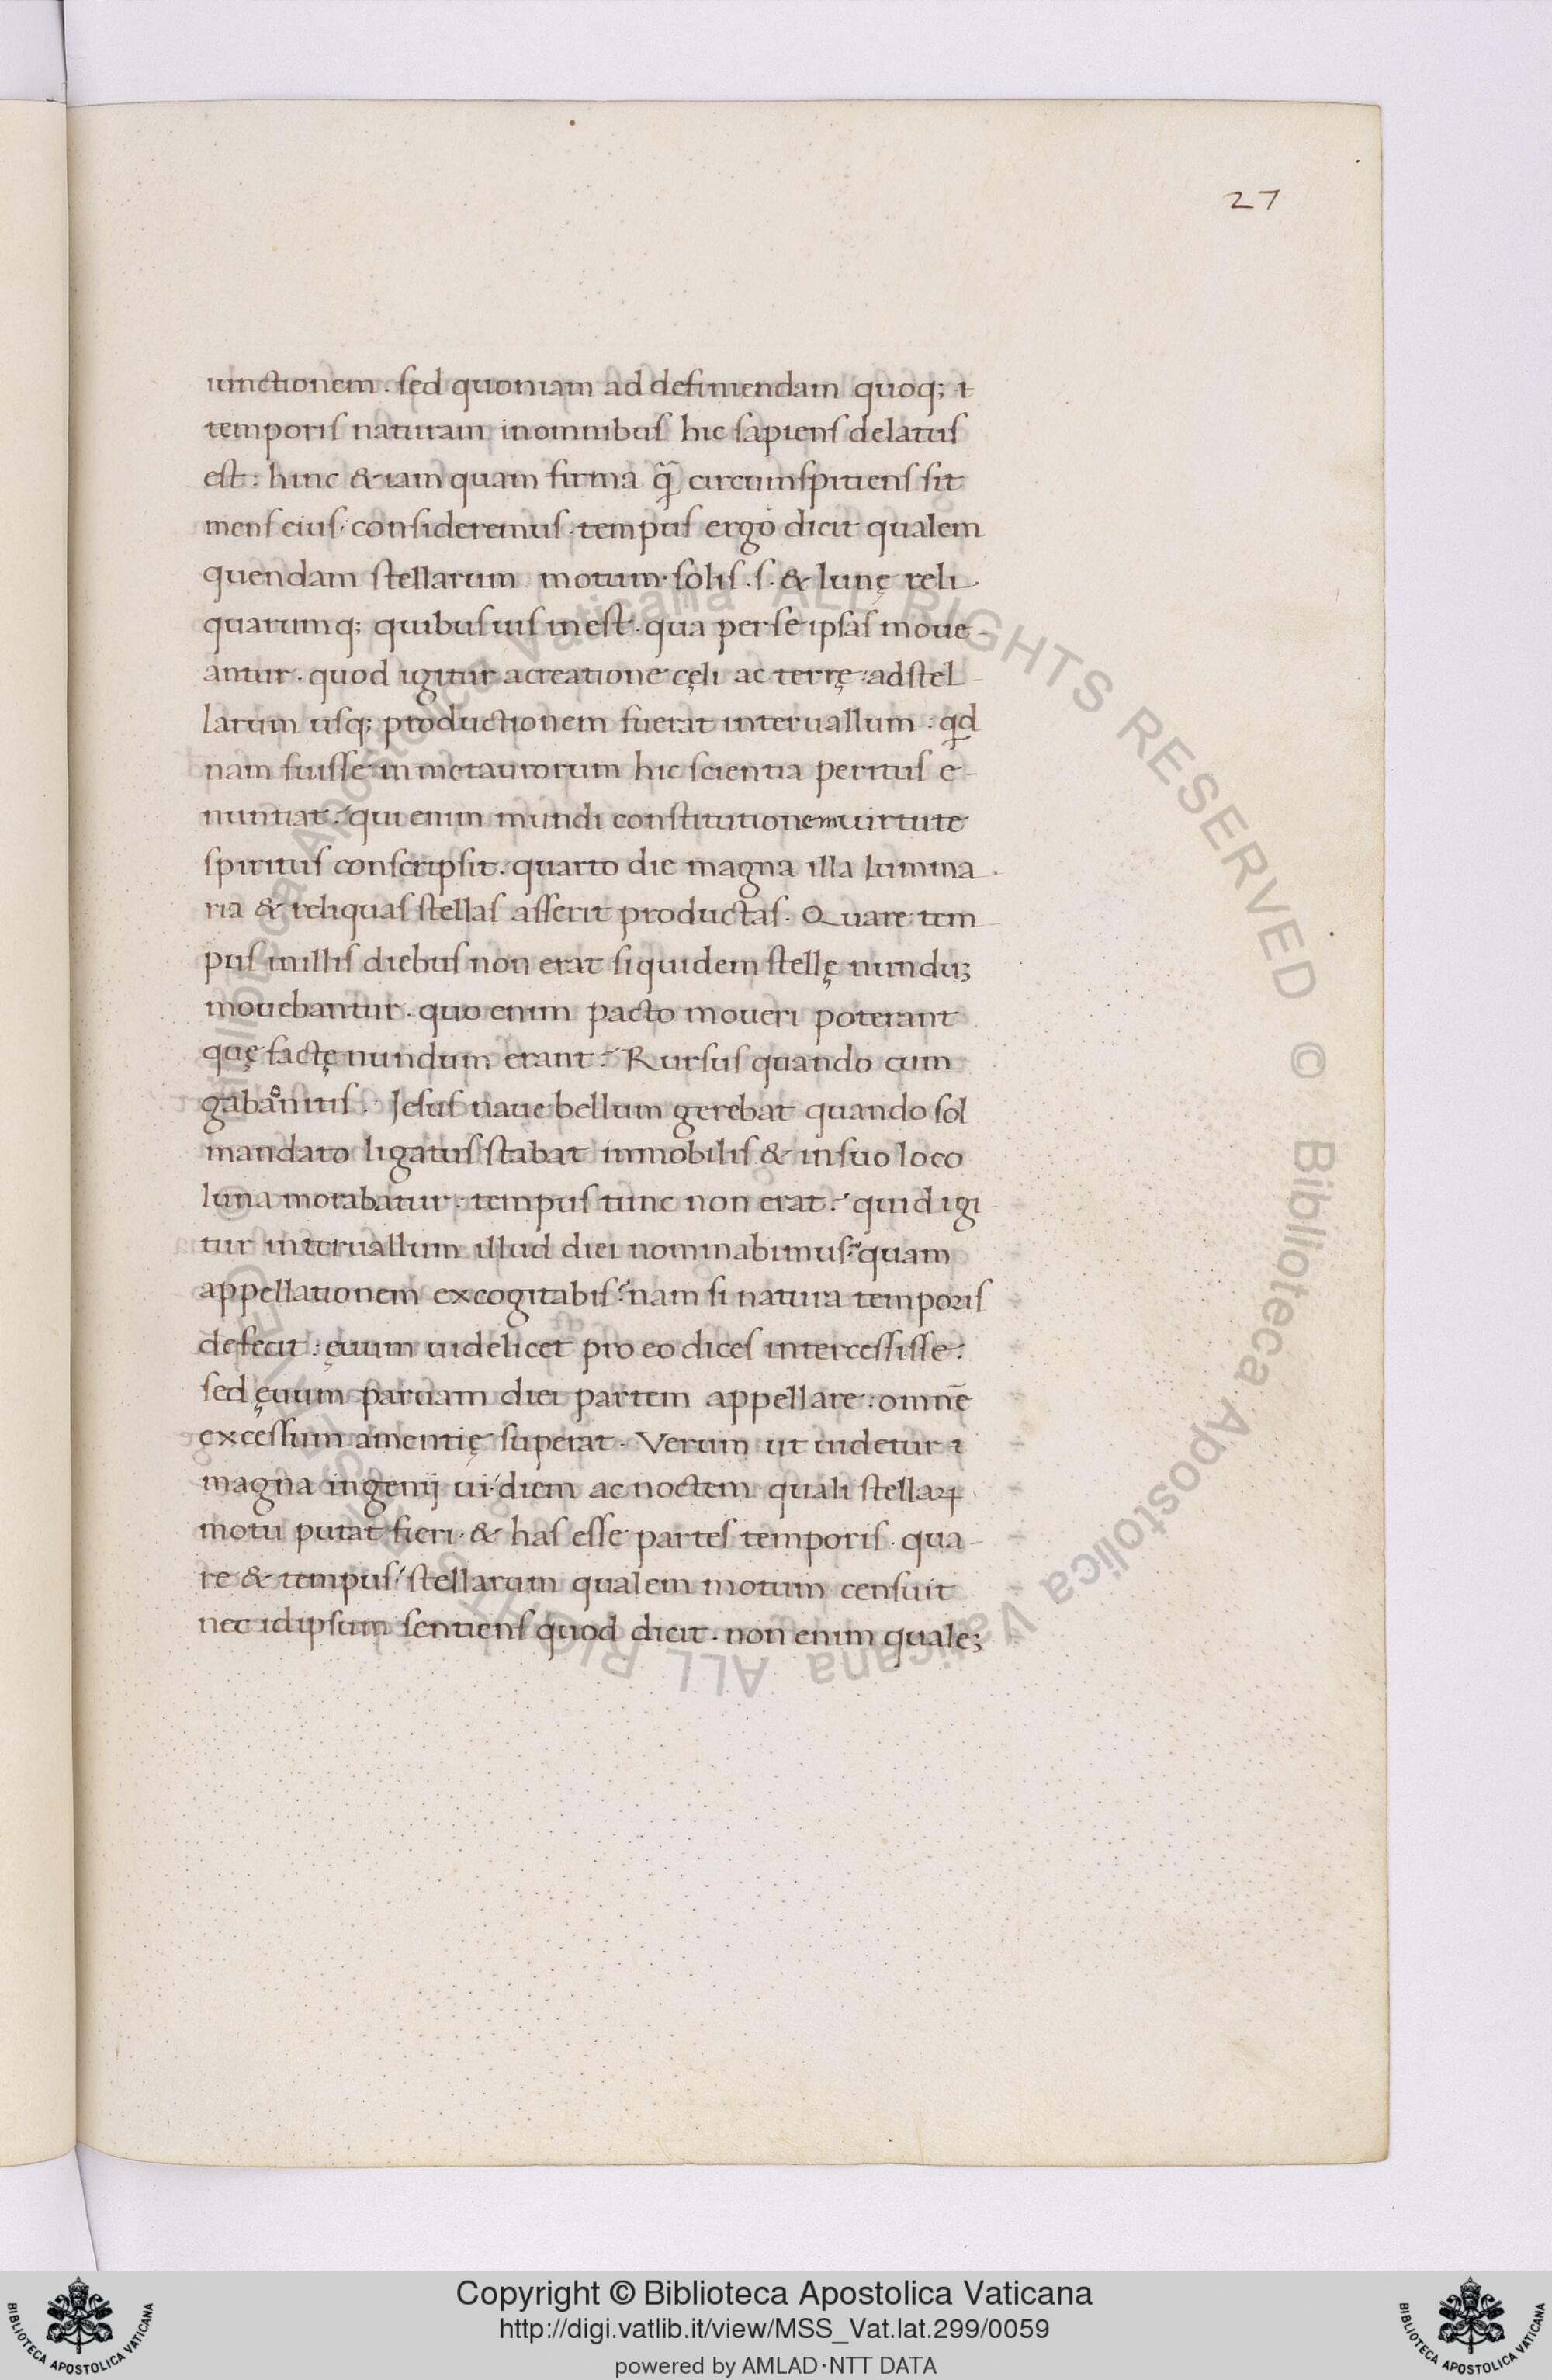 27
iunctionem. sed quoniam ad definiendam quoq; t
temporis naturam inomnibus hic sapiens delatus
est: hinc & iam quam firma q̃ circumspitiens sit
mens eius. consideremus. tempus ergo dicit qualem
quendam stellarum motum. solis. s. & lunę reli
quarumq; quibus uis inest. qua perse ipsas moue-
antur. quod igitur acreatione cęli ac terrę: adstel-
larum usq; productionem fuerat interuallum: qd
nam fuisse in metaurorum hic scientia peritus e-
nuntiat? qui enim mundi constitutionem uirtute
spiritus conscripsit. quarto die magna illa lumina-
ria & reliquas stellas asserit productas. Quare tem-
pus inillis diebus non erat siquidem stellę nundu;
mouebantur. quo enim pacto moueri poterant
quę factę nundum erant? Rursus quando cum
gabaonitis. Jesus naue bellum gerebat quando sol
mandato ligatus stabat inmobilis & insuo loco
luna morabatur. tempus tunc non erat? quid igi
tur interuallum illud diei nominabimus? quam
appellationem excogitabis? nam si natura temporis
defecit: ęuum uidelicet pro eo dices intercessisse:
sed ęuum paruam diei partem appellare: omnē
excessum amentię superat. Verum ut uidetur t
magna ingenij ui diem ac noctem quali stellaꝝ
motu putat fieri. & has esse partes temporis. qua-
re & tempus stellarum qualem motum censuit
nec idipsum sentiens quod dicit. non enim quale;
© Biblioteca Apostolica Vaticana ALL RIGHTS RESERVED © Biblioteca Apostolica Vaticana ALL RIGHTS RESERVED
Copyright © Biblioteca Apostolica Vaticana
http://digi.vatlib.it/view/MSS_Vat.lat.299/0059
powered by AMLAD·NTT DATA
BIBLIOTECA APOSTOLICA VATICANA
BIBLIOTECA APOSTOLICA VATICANA